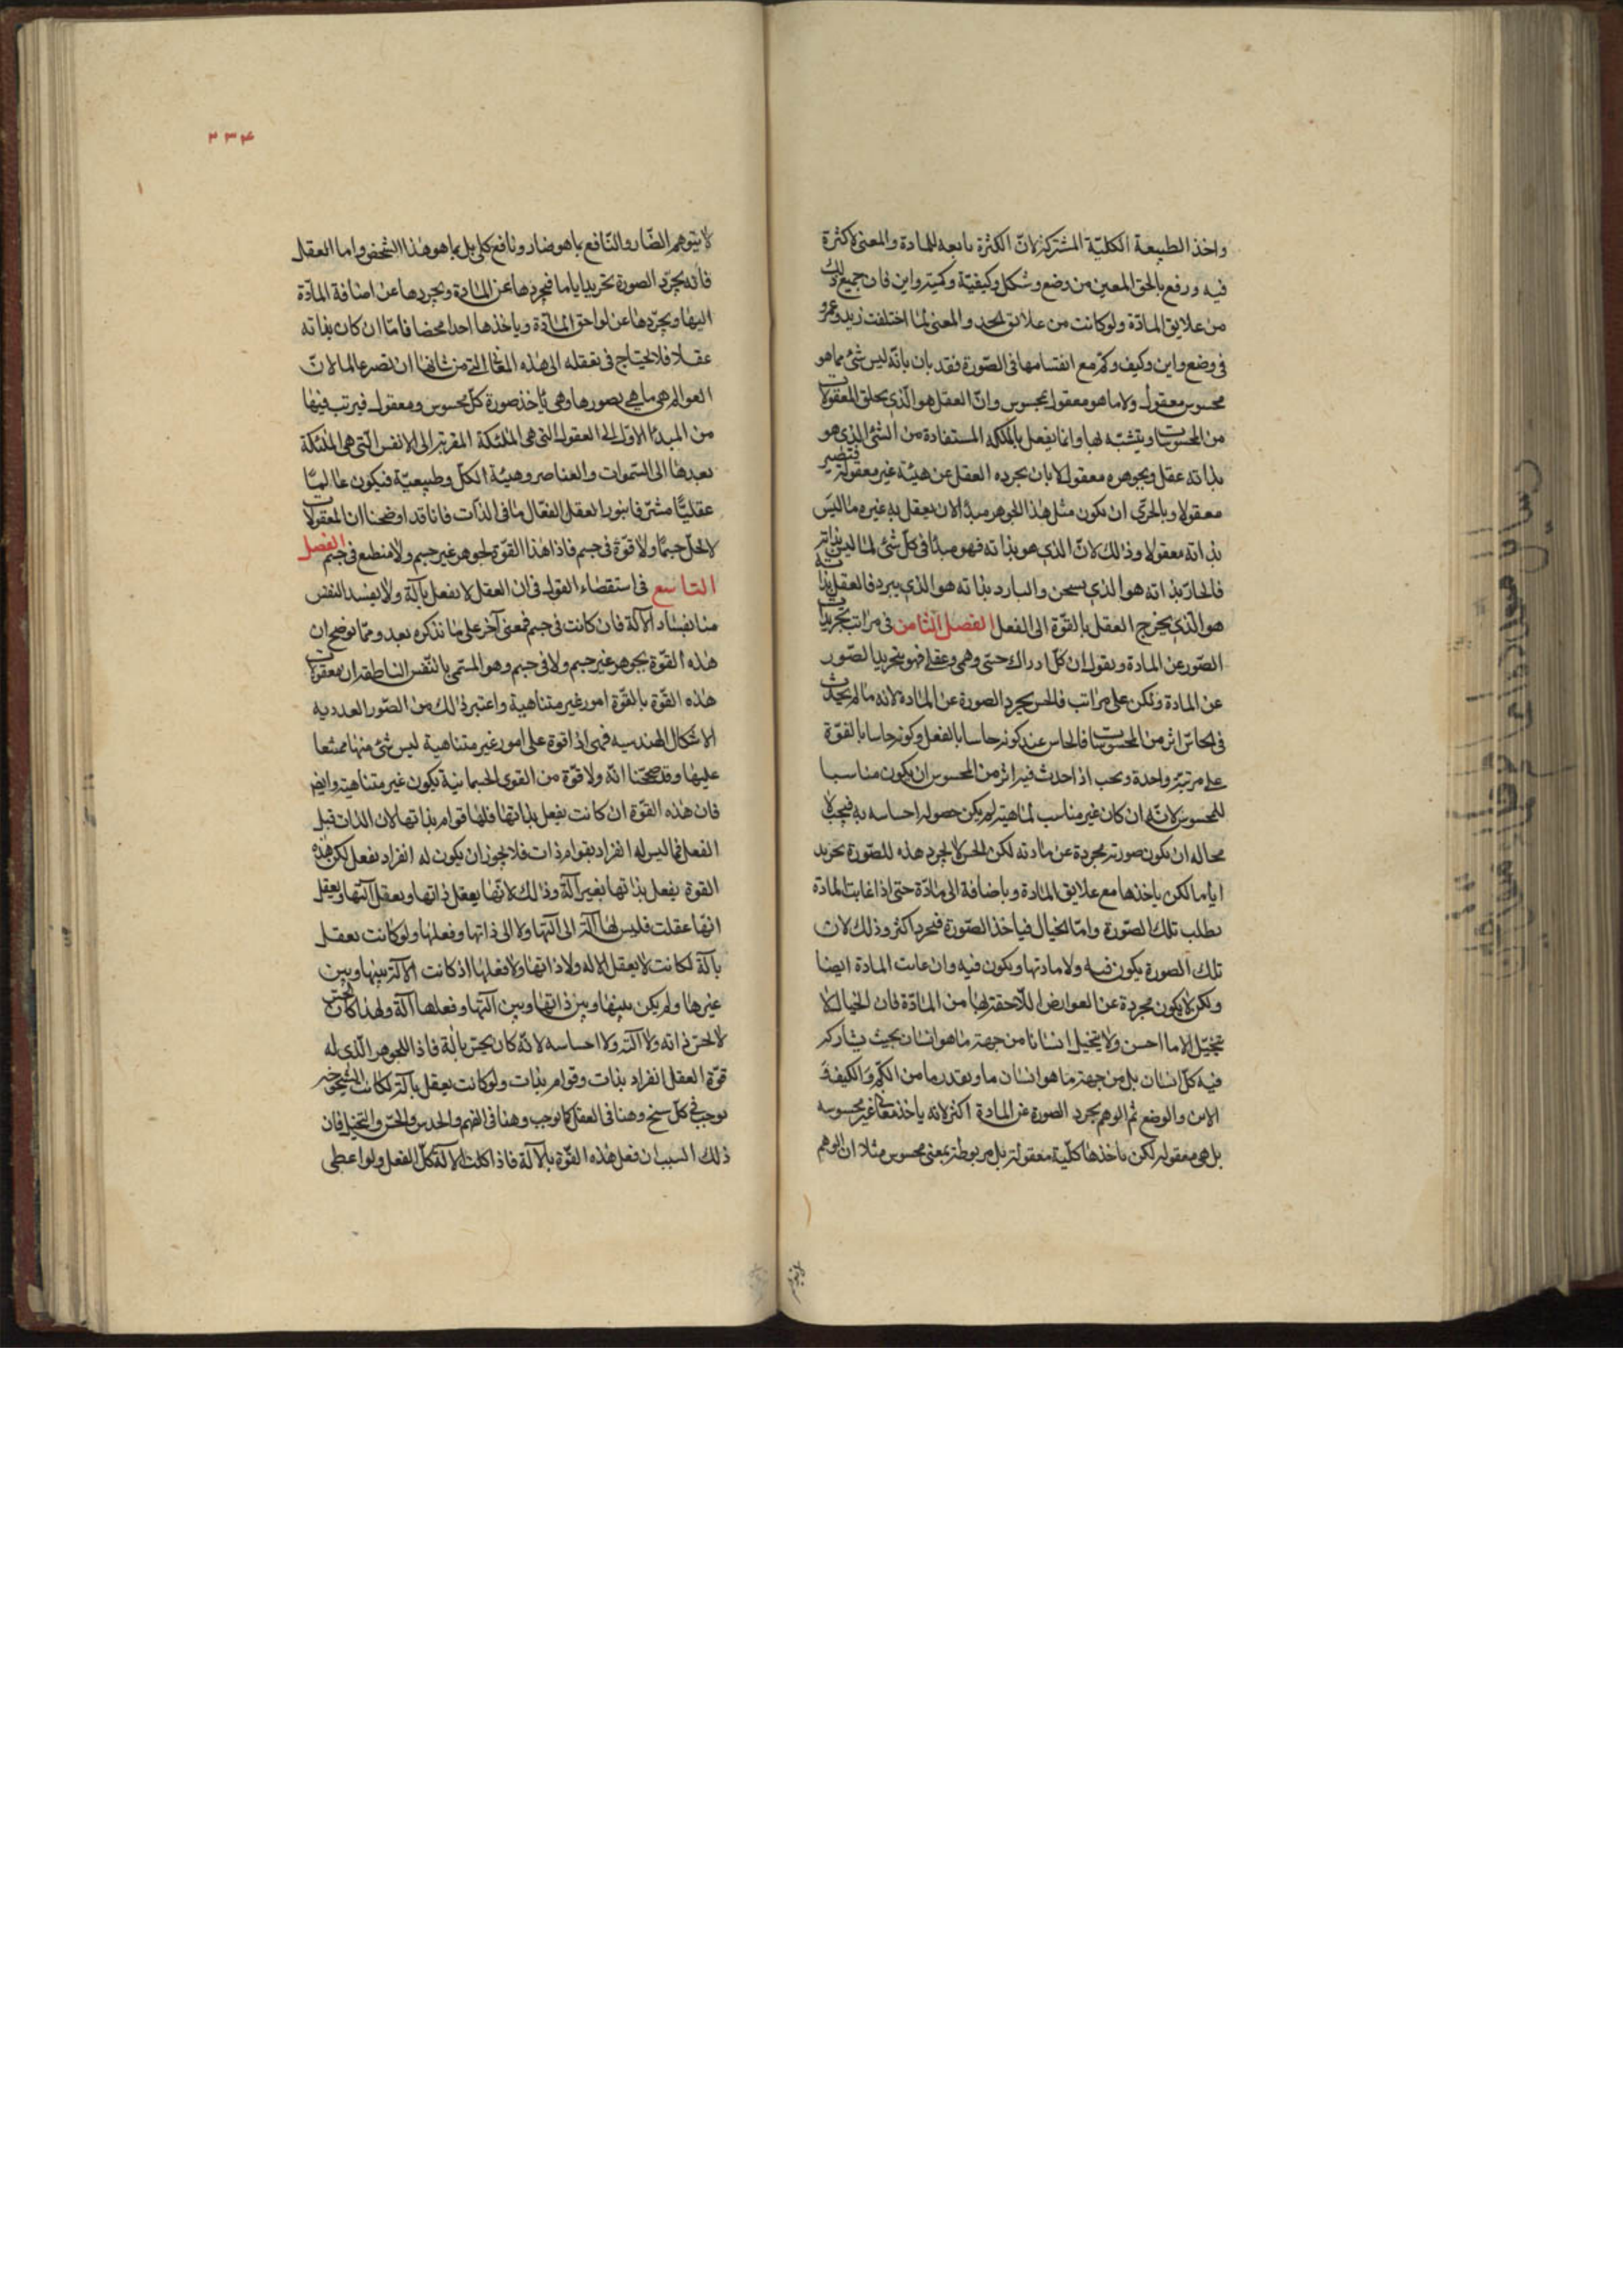 واخذ الطبيعة الكليّة المشتركة لانّ الكثرة تابعه للمادة والمعنى لا كثرة
فيه ورفع بالحق المعين من وضع وشكل وكيفيّة وكميّة واين فان جميع ذلك
من علايق المادّة ولو كانت من علائق الحد والمعنى لما اختلفت زيد وعمرو
فى وضع واين وكيف وكم مع اتفسامها فى الصّورة فقد بان بانّه ليس شئ مما هو
محسوس معقول ولا ما هو معقول بمحسوس وانّ العقل هو الّذى يحلق المعقولات
من المحسوسات ويتشبّه بها وانما يفعل بالملكه المستفادة من الشئ الذى هو
بذاته عقل وبجوهره معقول لا بان يجرده العقل عن هيئة غير معقولة فتصير
معقولا وبالحرّى ان يكون مثل هذا الجوهر مبدأ لان يعقل به غيره ما ليس
بذاته معقولا وذلك لانّ الذى هو بذاته فهو مبدأ فى كلّ شئ لما ليس بذاته
فالحارّ بذاته هو الذى يسخن والبارد بذاته هو الذى يبرد فالعقل بذاته
هو الّذى يخرج العقل بالقوّة الى الفعل الفصل الثامن فى مراتب تجريدات
الصّور عن المادة ونقول ان كلّ ادراك حسّى وهمى وعقلى فهو بتجريد الصّور
عن المادة ولكن على مراتب فالحس يجرد الصورة عن المادة لانه ما لم يحدث
فى الحاسّ اثر من المحسوسات فالحاس عند كونه حاسا بالفعل وكونه حاسا بالقوّة
على مرتبة واحدة ويجب اذ احدث فيه اثر من المحسوس ان يكون مناسبا
للمحسوس لانّه ان كان غير مناسب لماهيته لم يكن حصوله احساسه به فيجب لا
محاله ان يكون صورته مجردة عن مادته لكن الحس لا يجرد هذه الصّورة تجريد
اياما لكن ياخذها مع علايق المادة وباضافة الى مادّة حتى اذا غابت المادة
بطلب تلك الصّورة وامّا الخيال فياخذ الصّورة فيجرد اكثر وذلك لان
تلك الصورة يكون فيه ولا مادتها ويكون فيه وان غابت المادة ايضا
ولكن لا يكون مجردة عن العوارض اللّاحقة لها من المادّة فان الخيال لا
تخيّل الا ما احسن ولا يتخيل انسانا من جهة ما هو انسان بحيث يشاركه
فيه كلّ انسان بل من جهة ما هو انسان ما وبقدر ما من الكمّ والكيفة
الاين والوضع ثم الوهم يجرد الصورة عن المادة اكثر لانه ياخذ معانى غير محسوسه
بل هى معقوله لكن ياخذها كلّية معقولة بل مربوطة بمعنى محسوس مثلا ان الوهم
٢٣۴
لا يتوهم الضّار والنّافع بما هو ضار ونافع كلى بل بما هو هذا الشخص واما العقل
فانّه يجرّد الصورة تجريدا ياما فيجردها عن المادة ويجردها عن اضافة المادّة
اليها ويجرّدها عن لواحق المادّة وياخذها احدا محضا فامّا ان كان بذاته
عقلا فلا يحتاج فى تعقله الى هذه التى من شانها ان تصير عالما لانّ
العوالم هى ما هى بصورها وهى تأخذ صورة كلّ محسوس ومعقول فيرتب فيها
من المبدأ الاوّل الى العقول التى هى الملئكة المقربة الى الانفس الّتى هى الملئكة
بعدها الى السّموات والعناصر وهيئة الكلّ وطبيعيّة فيكون عالميّا
عقليّا مشرّفا بنور العقل الفعّال ما فى الذّات فانا قد اوضحنا ان المعقولات
لا تحلّ جسمًا ولا قوّة فى جسم فاذا هذا القوّة لجوهر غير جسم ولا منطبع فى جسم الفصل
التاسع فى استقصاء القول فى ان العقل لا يفعل بآلة ولا يفسد النفس
منا بفساد الآلة فان كانت فى جسم فمعنى آخر على ما نذكره بعد ومّما يوضح ان
هذه القوّة بجوهر غير جسم ولا فى جسم وهو المسمى بالنّفس الناطقة ان معقولات
هذه القوّة بالقوّة امور غير متناهية واعتبر ذلك من الصّور العدديه
الاشكال الهندسيه فهى اذا قوة على امور غير متناهية ليس شئ منها ممتنعا
عليها وقد صحّحنا انّه ولا قوّة من القوى الجسمانية يكون غير متناهية وايض
فان هذه القوّة ان كانت يفعل بذاتها فلها قوام بذاتها لان الذات قبل
الفعل فما ليس له انفراد بقوام ذات فلا يجوز ان يكون له انفراد بفعل لكن هذه
القوة يفعل بذاتها بغير آلة وذلك لانّها يعقل ذاتها ويعقل آلتها ويعقل
انّها عقلت فليس لها آلة الى آلتها ولا الى ذاتها وفعلها ولو كانت تعقل
بآلة لكانت لا يعقل الاله ولا ذاتها ولا فعلها اذ كانت الآلة بينها وبين
غيرها ولم يكن بينها وبين ذاتها وبين آلتها وفعلها آلة ولهذا كان الحس
لا يحسّ ذاته ولا آلته ولا احساسه لانّه كان يحسّ بآلة فاذا الجوهر الّذى له
قوّة العقل انفراد بذات وقوام بذات ولو كانت يعقل بآلة لكانت الشيخوخه
توجب فى كل سنخ وهنا فى العقل كما توجب وهنا فى الفهم والحدس والحسّ والتخيل فان
ذلك السبب ان فعل هذه القوّة بالآلة فاذا كلت الآلة كلّ الفعل ولو اعطى